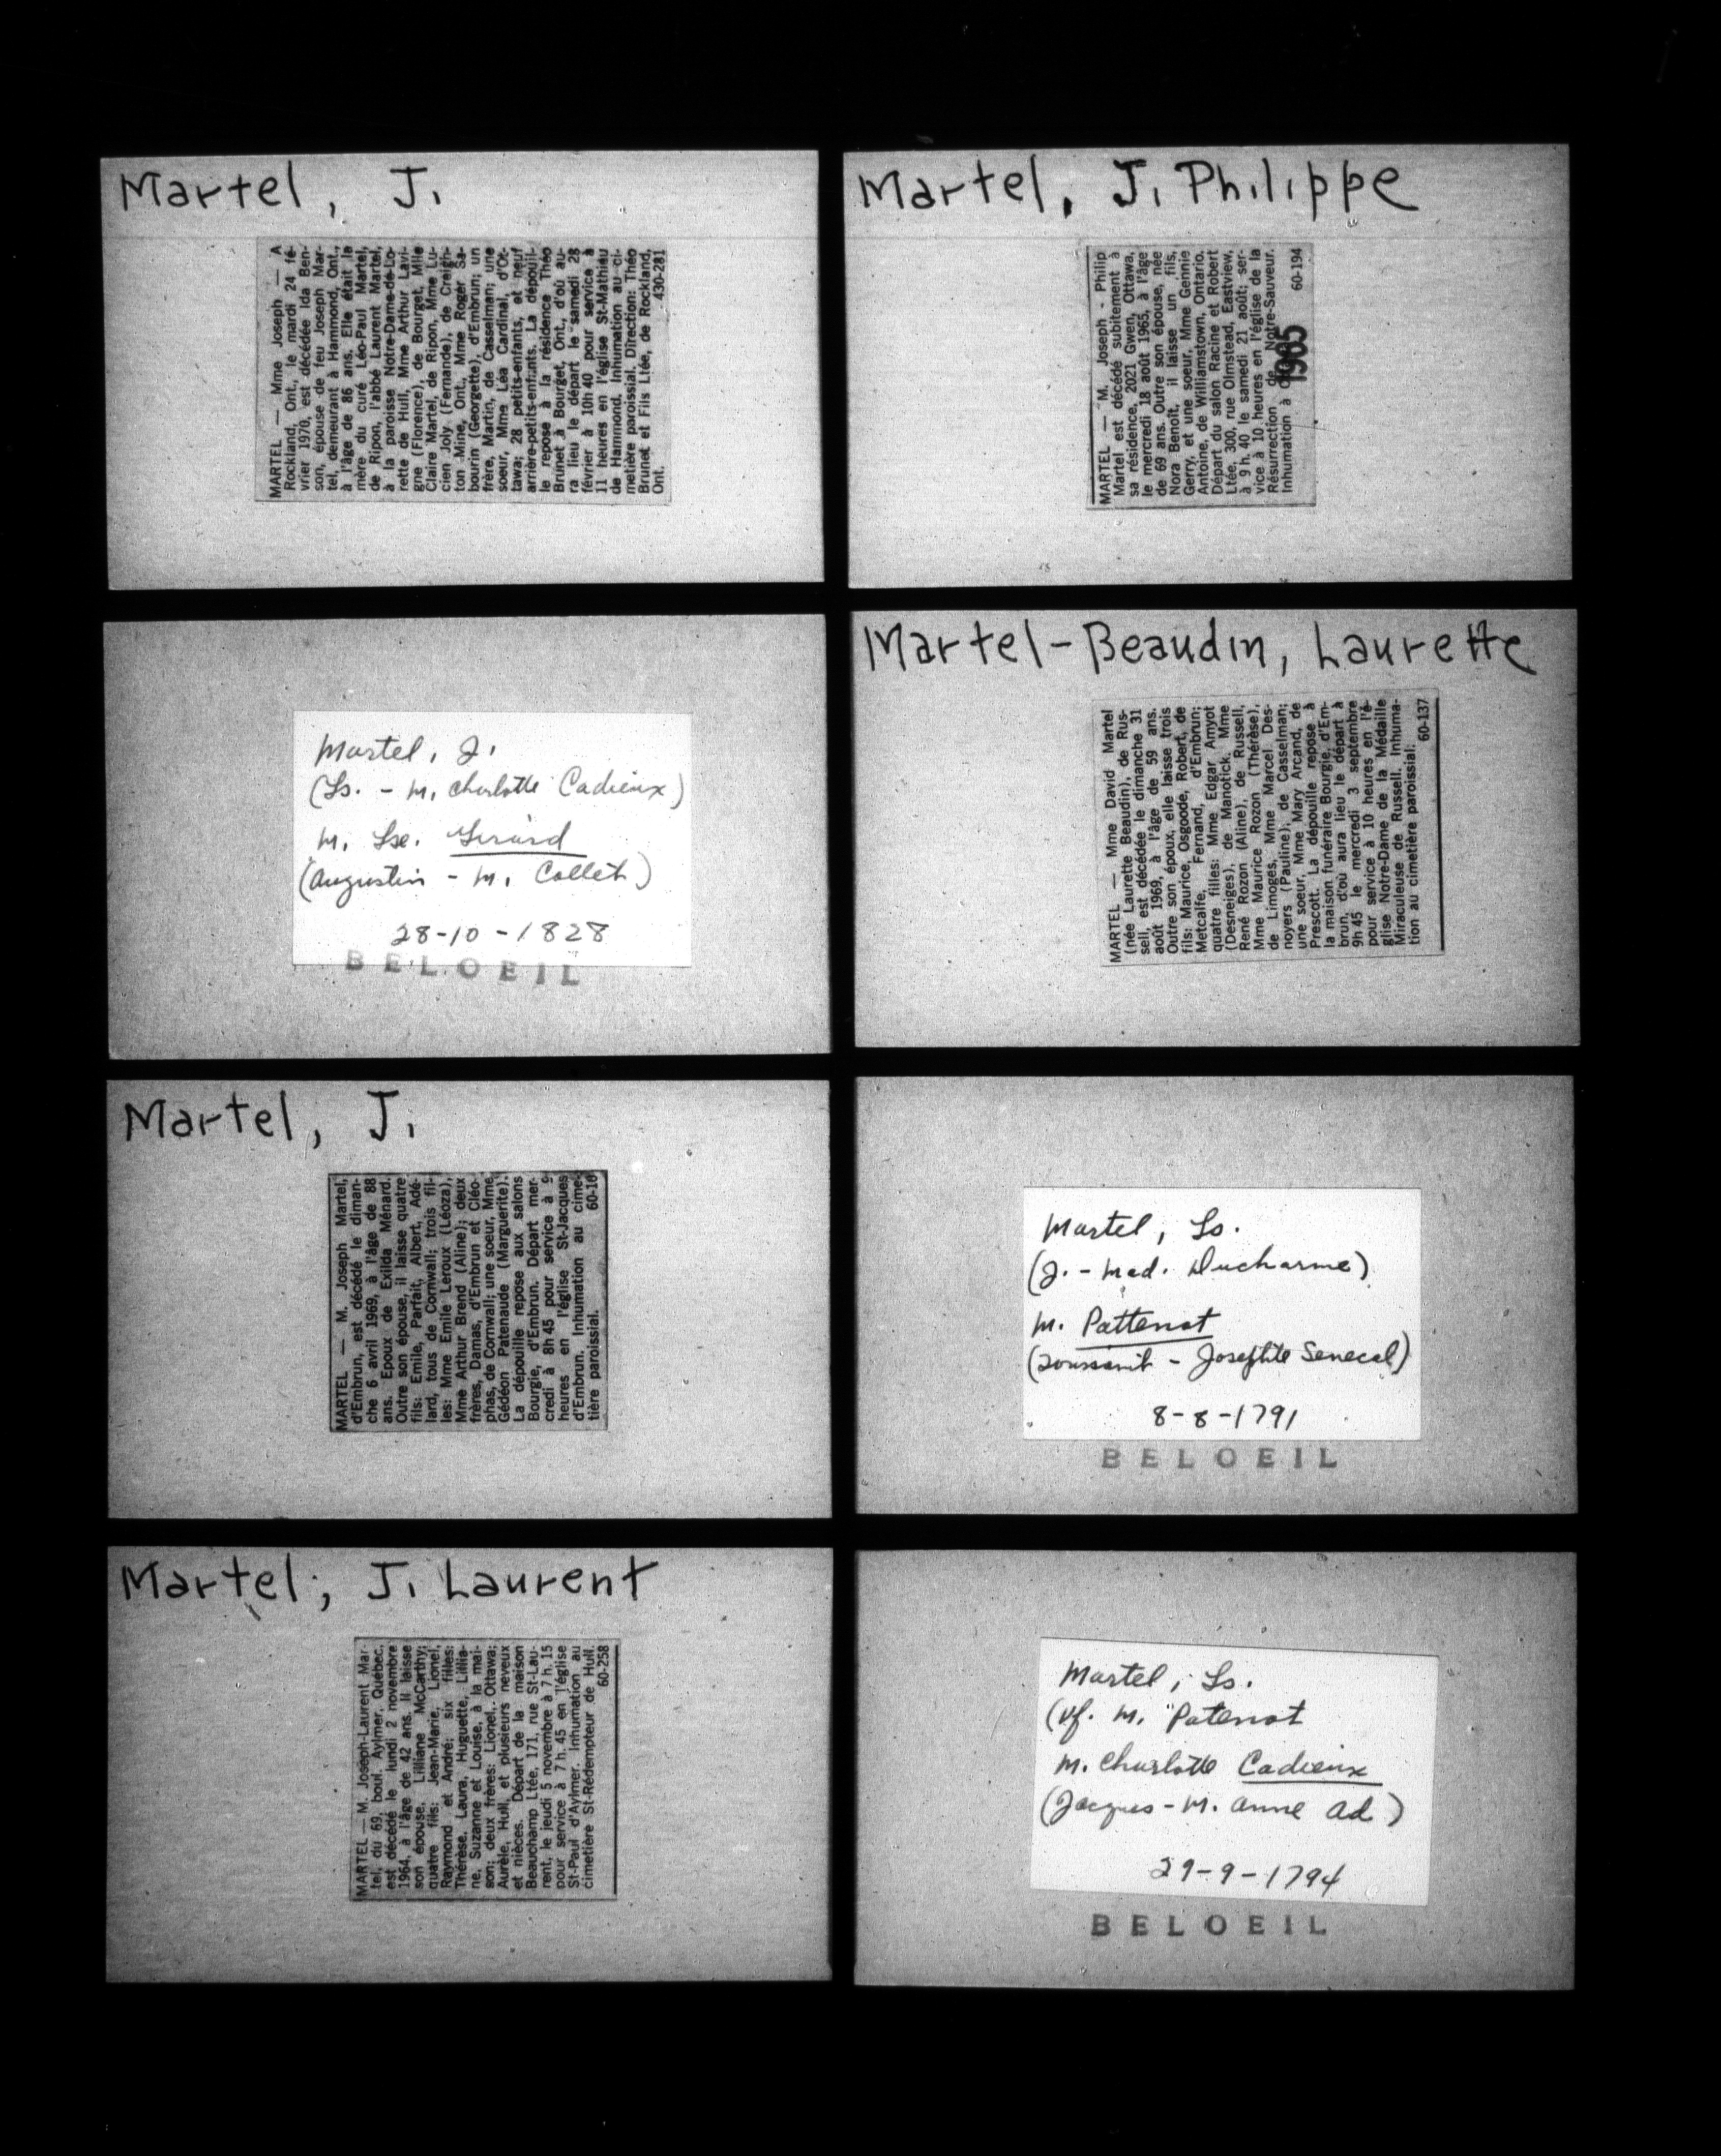 Martel, J.
MARTEL — Mme Joseph — A
Rockland, Ont., le mardi 24 fé-
vrier 1970, est décédée Ida Ben-
son, épouse de feu Joseph Mar-
tel, demeurant à Hammond, Ont.,
à l'âge de 86 ans. Elle était la
mère du curé Léo-Paul Martel,
de Ripon, l'abbé Laurent Martel,
à la paroisse Notre-Dame-de-Lo-
rette de Hull, Mme Arthur Lavi-
gne (Florence), de Bourget, Mlle
Claire Martel, de Ripon, Mme Lu-
cien Joly (Fernande), de Creigh-
ton Mine, Ont., Mme Roger Sa-
bourin (Georgette), d'Embrun; un
frère, Martin, de Casselman; une
soeur, Mme Léa Cardinal, d'Ot-
tawa; 28 petits-enfants, et neuf
arrière-petits-enfants. La dépouil-
le repose à la résidence Théo
Brunet à Bourget, Ont., d'où au-
ra lieu le départ le samedi 28
février à 10h 40 pour service à
11 heures en l'église St-Mathieu
de Hammond. Inhumation au ci-
metière paroissial. Direction: Théo
Brunet et Fils Ltée, de Rockland,
Ont. 430-281
Martel, J. Philippe
MARTEL — M. Joseph - Philip
Martel est décédé subitement à
sa résidence, 2021 Gwen, Ottawa,
le mercredi 18 août 1965, à l'âge
de 69 ans. Outre son épouse, née
Nora Benoît, il laisse un fils,
Gerry, et une soeur, Mme Gennie
Antoine, de Williamstown, Ontario.
Départ du salon Racine et Robert
Ltée, 300, rue Olmstead, Eastview,
à 9 h. 40 le samedi 21 août; ser-
vice à 10 heures en l'église de la
Résurrection de Notre-Sauveur.
Inhumation à 60-194
1965
Martel, J.
(Ls. - M. Charlotte Cadieux)
M. Lse. Girard
(Augustin - M. Collet)
28-10-1828
BELOEIL
Martel-Beaudin, Laurette
MARTEL — Mme David Martel
(née Laurette Beaudin), de Rus-
sell, est décédée le dimanche 31
août 1969, à l'âge de 59 ans.
Outre son époux, elle laisse trois
fils: Maurice, Osgoode, Robert, de
Metcalfe, Fernand, d'Embrun;
quatre filles: Mme Edgar Amyot
(Desneiges), de Manotick, Mme
René Rozon (Aline), de Russell,
Mme Maurice Rozon (Thérèse),
de Limoges, Mme Marcel Des-
noyers (Pauline), de Casselman;
une soeur, Mme Mary Arcand, de
Prescott. La dépouille repose à
la maison funéraire Bourgie, d'Em-
brun, d'où aura lieu le départ à
9h 45 le mercredi 3 septembre
pour service à 10 heures en l'é-
glise Notre-Dame de la Médaille
Miraculeuse de Russell. Inhuma-
tion au cimetière paroissial.
60-137
Martel, J.
MARTEL — M. Joseph Martel,
d'Embrun, est décédé le diman-
che 6 avril 1969, à l'âge de 88
ans. Epoux de Exilda Ménard.
Outre son épouse, il laisse quatre
fils: Emile, Parfait, Albert, Adé-
lard, tous de Cornwall; trois fil-
les: Mme Emile Leroux (Léoza),
Mme Arthur Brend (Aline); deux
frères, Damas, d'Embrun et Cléo-
phas, de Cornwall; une soeur, Mme
Gédéon Patenaude (Marguerite).
La dépouille repose aux salons
Bourgie, d'Embrun. Départ mer-
credi à 8h 45 pour service à 9
heures en l'église St-Jacques
d'Embrun. Inhumation au cime-
tière paroissial. 60-18
Martel, Ls.
(J. - Mad. Ducharme)
M. Pattenot
(Toussaint - Josephte Senecal)
8-8-1791
BELOEIL
Martel, J. Laurent
MARTEL — M. Joseph-Laurent Mar-
tel, du 69, boul. Aylmer, Québec,
est décédé le lundi 2 novembre
1964, à l'âge de 42 ans. Il laisse
son épouse, Lilliane McCarthy;
quatre fils: Jean-Marie, Lionel,
Raymond et André; six filles:
Thérèse, Laura, Huguette, Lillia-
ne, Suzanne et Louise, à la mai-
son; deux frères: Lionel, Ottawa;
Aurèle, Hull, et plusieurs neveux
et nièces. Départ de la maison
Beauchamp Ltée, 171, rue St-Lau-
rent, le jeudi 5 novembre à 7 h. 15
pour service à 7 h. 45 en l'église
St-Paul d'Aylmer. Inhumation au
cimetière St-Rédempteur de Hull.
60-258
Martel, Ls.
(vf. M. Patenot
M. Charlotte Cadieux
(Jacques - M. Anne Ad.)
29-9-1794
BELOEIL